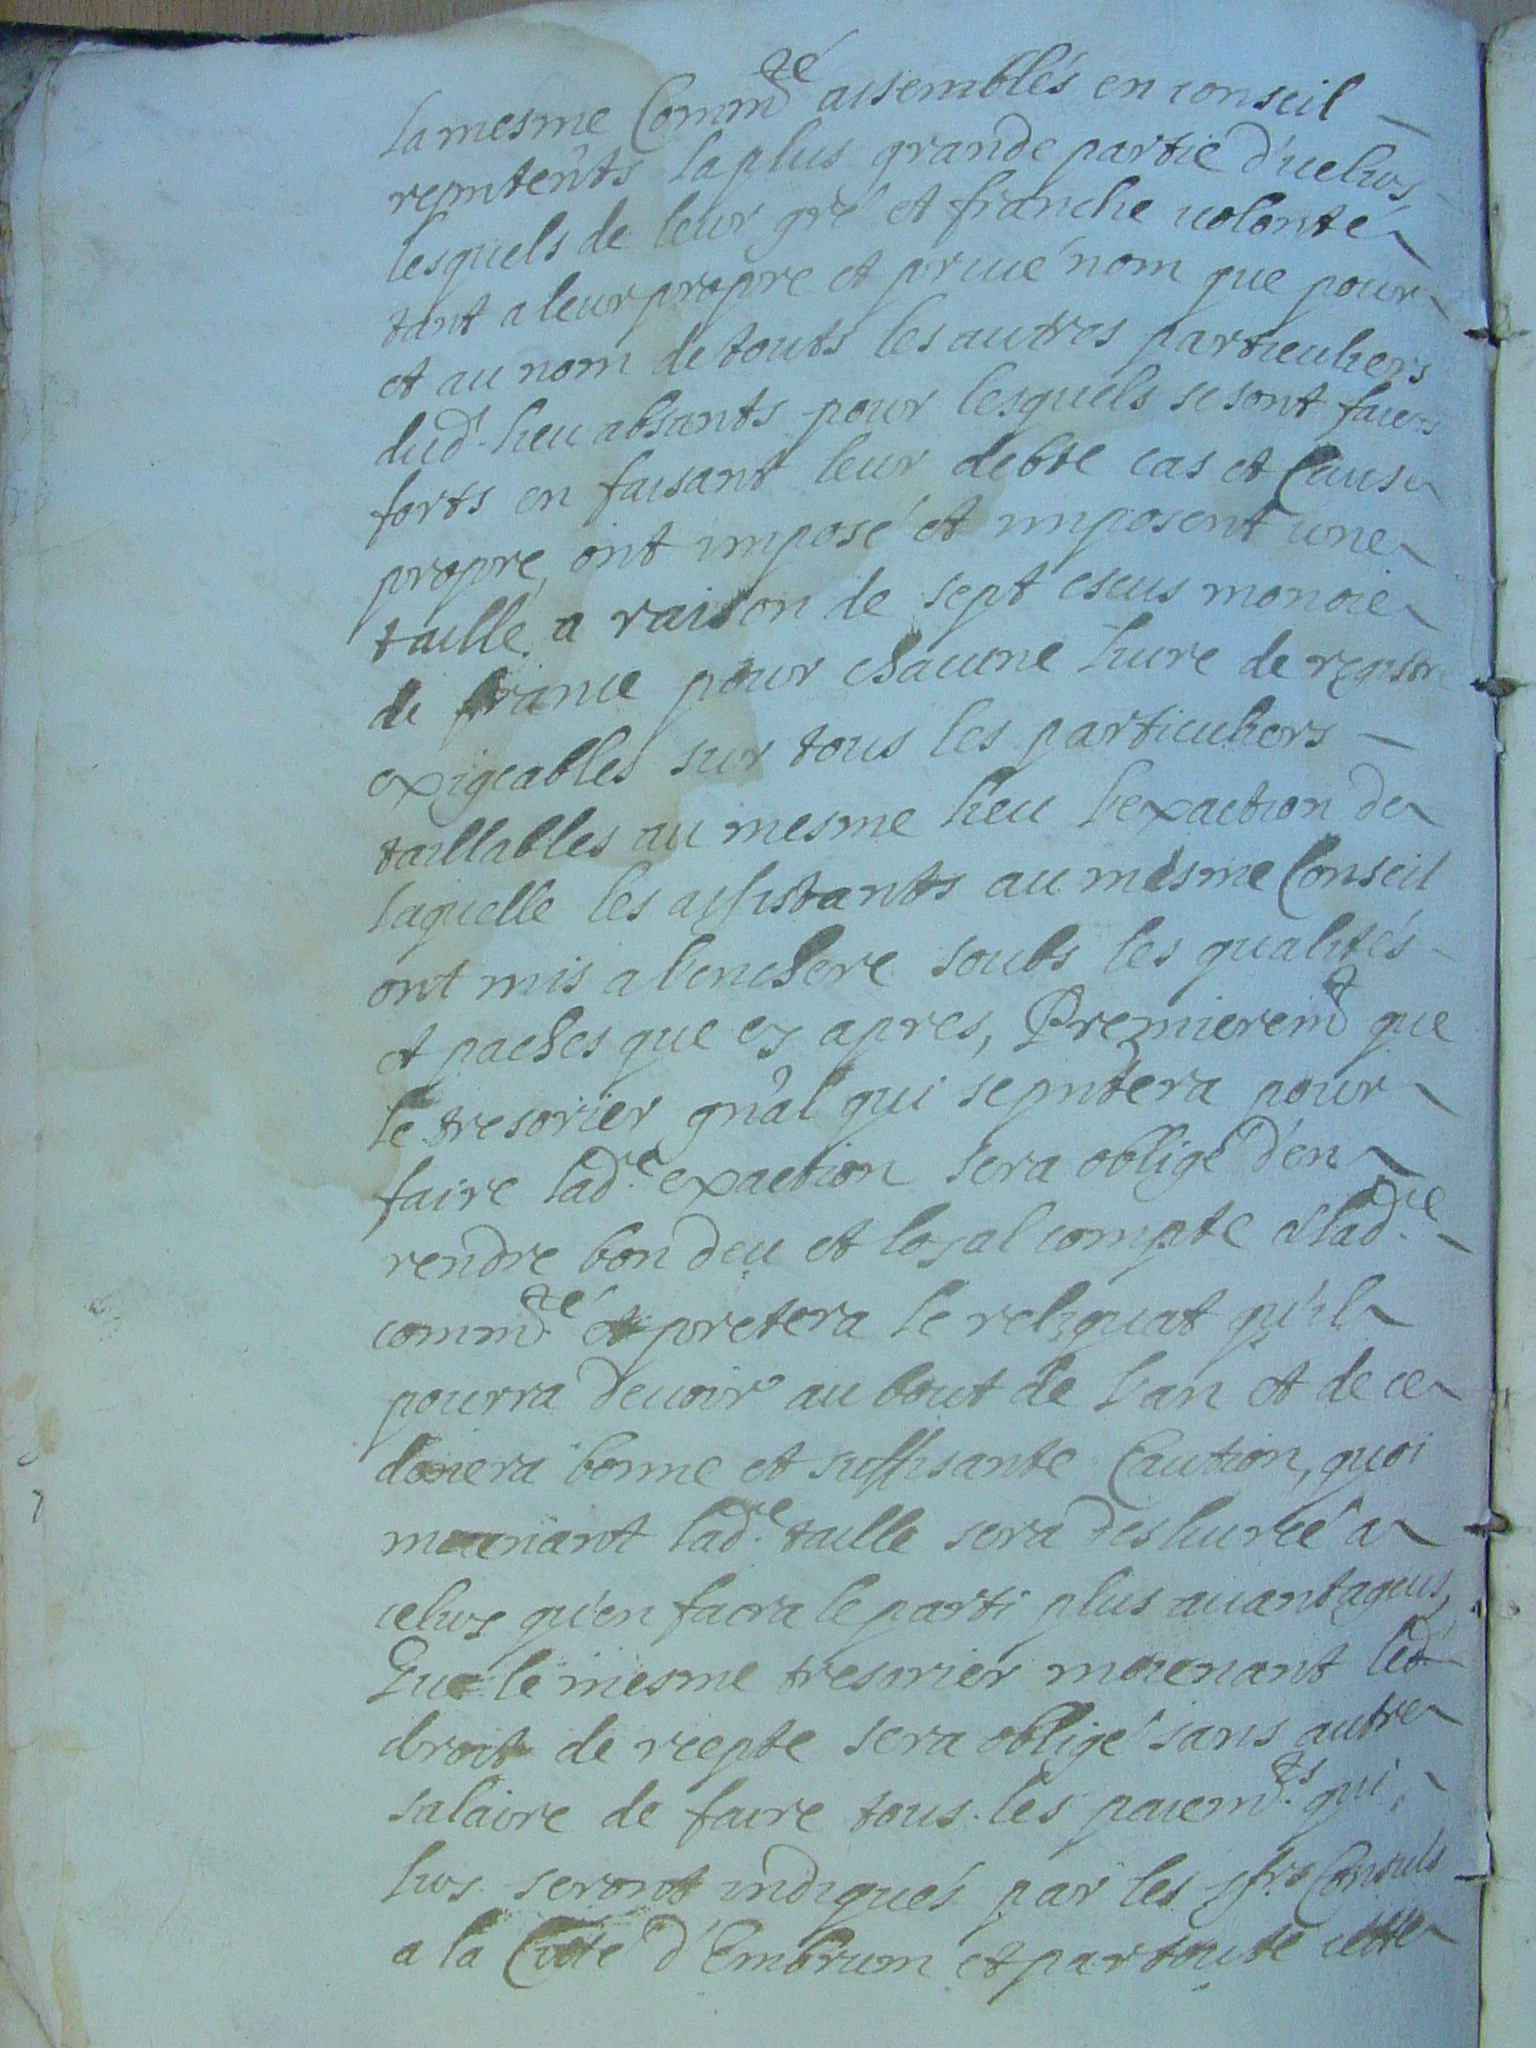 la mesme Comm.té assemblés en conseil
reprntents la plus grande partie d'icelluy
lesquels de leur gré et franche volonté
tant a leur propre et privé nom que pour
et au nom de touts les autres particuliers
dud.t lieu absants pour lesquels se sont faicts
forts en faisant leur debte cas et Cause
propre, ont imposé et imposent une
taille a raison de sept escus monoie
de france pour chacune livre de registre
exigeables sur tous les particuliers
taillables au mesme lieu l'exaction de
laquelle les assistants au mesme Conseil
ont mis a l'enchere soubs les qualités
et paches que cy apres, Premierem.t que
le tresorier gnal qui se pntera pour
faire lad.te exaction sera obligé d'en
rendre bon deu et loyal compte a lad.te
comm.té et pretera le reliquat qu'il
pourra devoir au bout de l'an et de ce
donera bonne et suffisante Caution, quoi
moienant lad.te taille sera deslivrée a
celuy qu'en faira le parti plus avantageus,
Que le mesme tresorier moienant led.t
droit de recepte sera obligé sans autre
salaire de faire tous les paiem.ts qui
luy seront indiqués par les srs Consuls
a la Cité d'Embrum et par toute cette